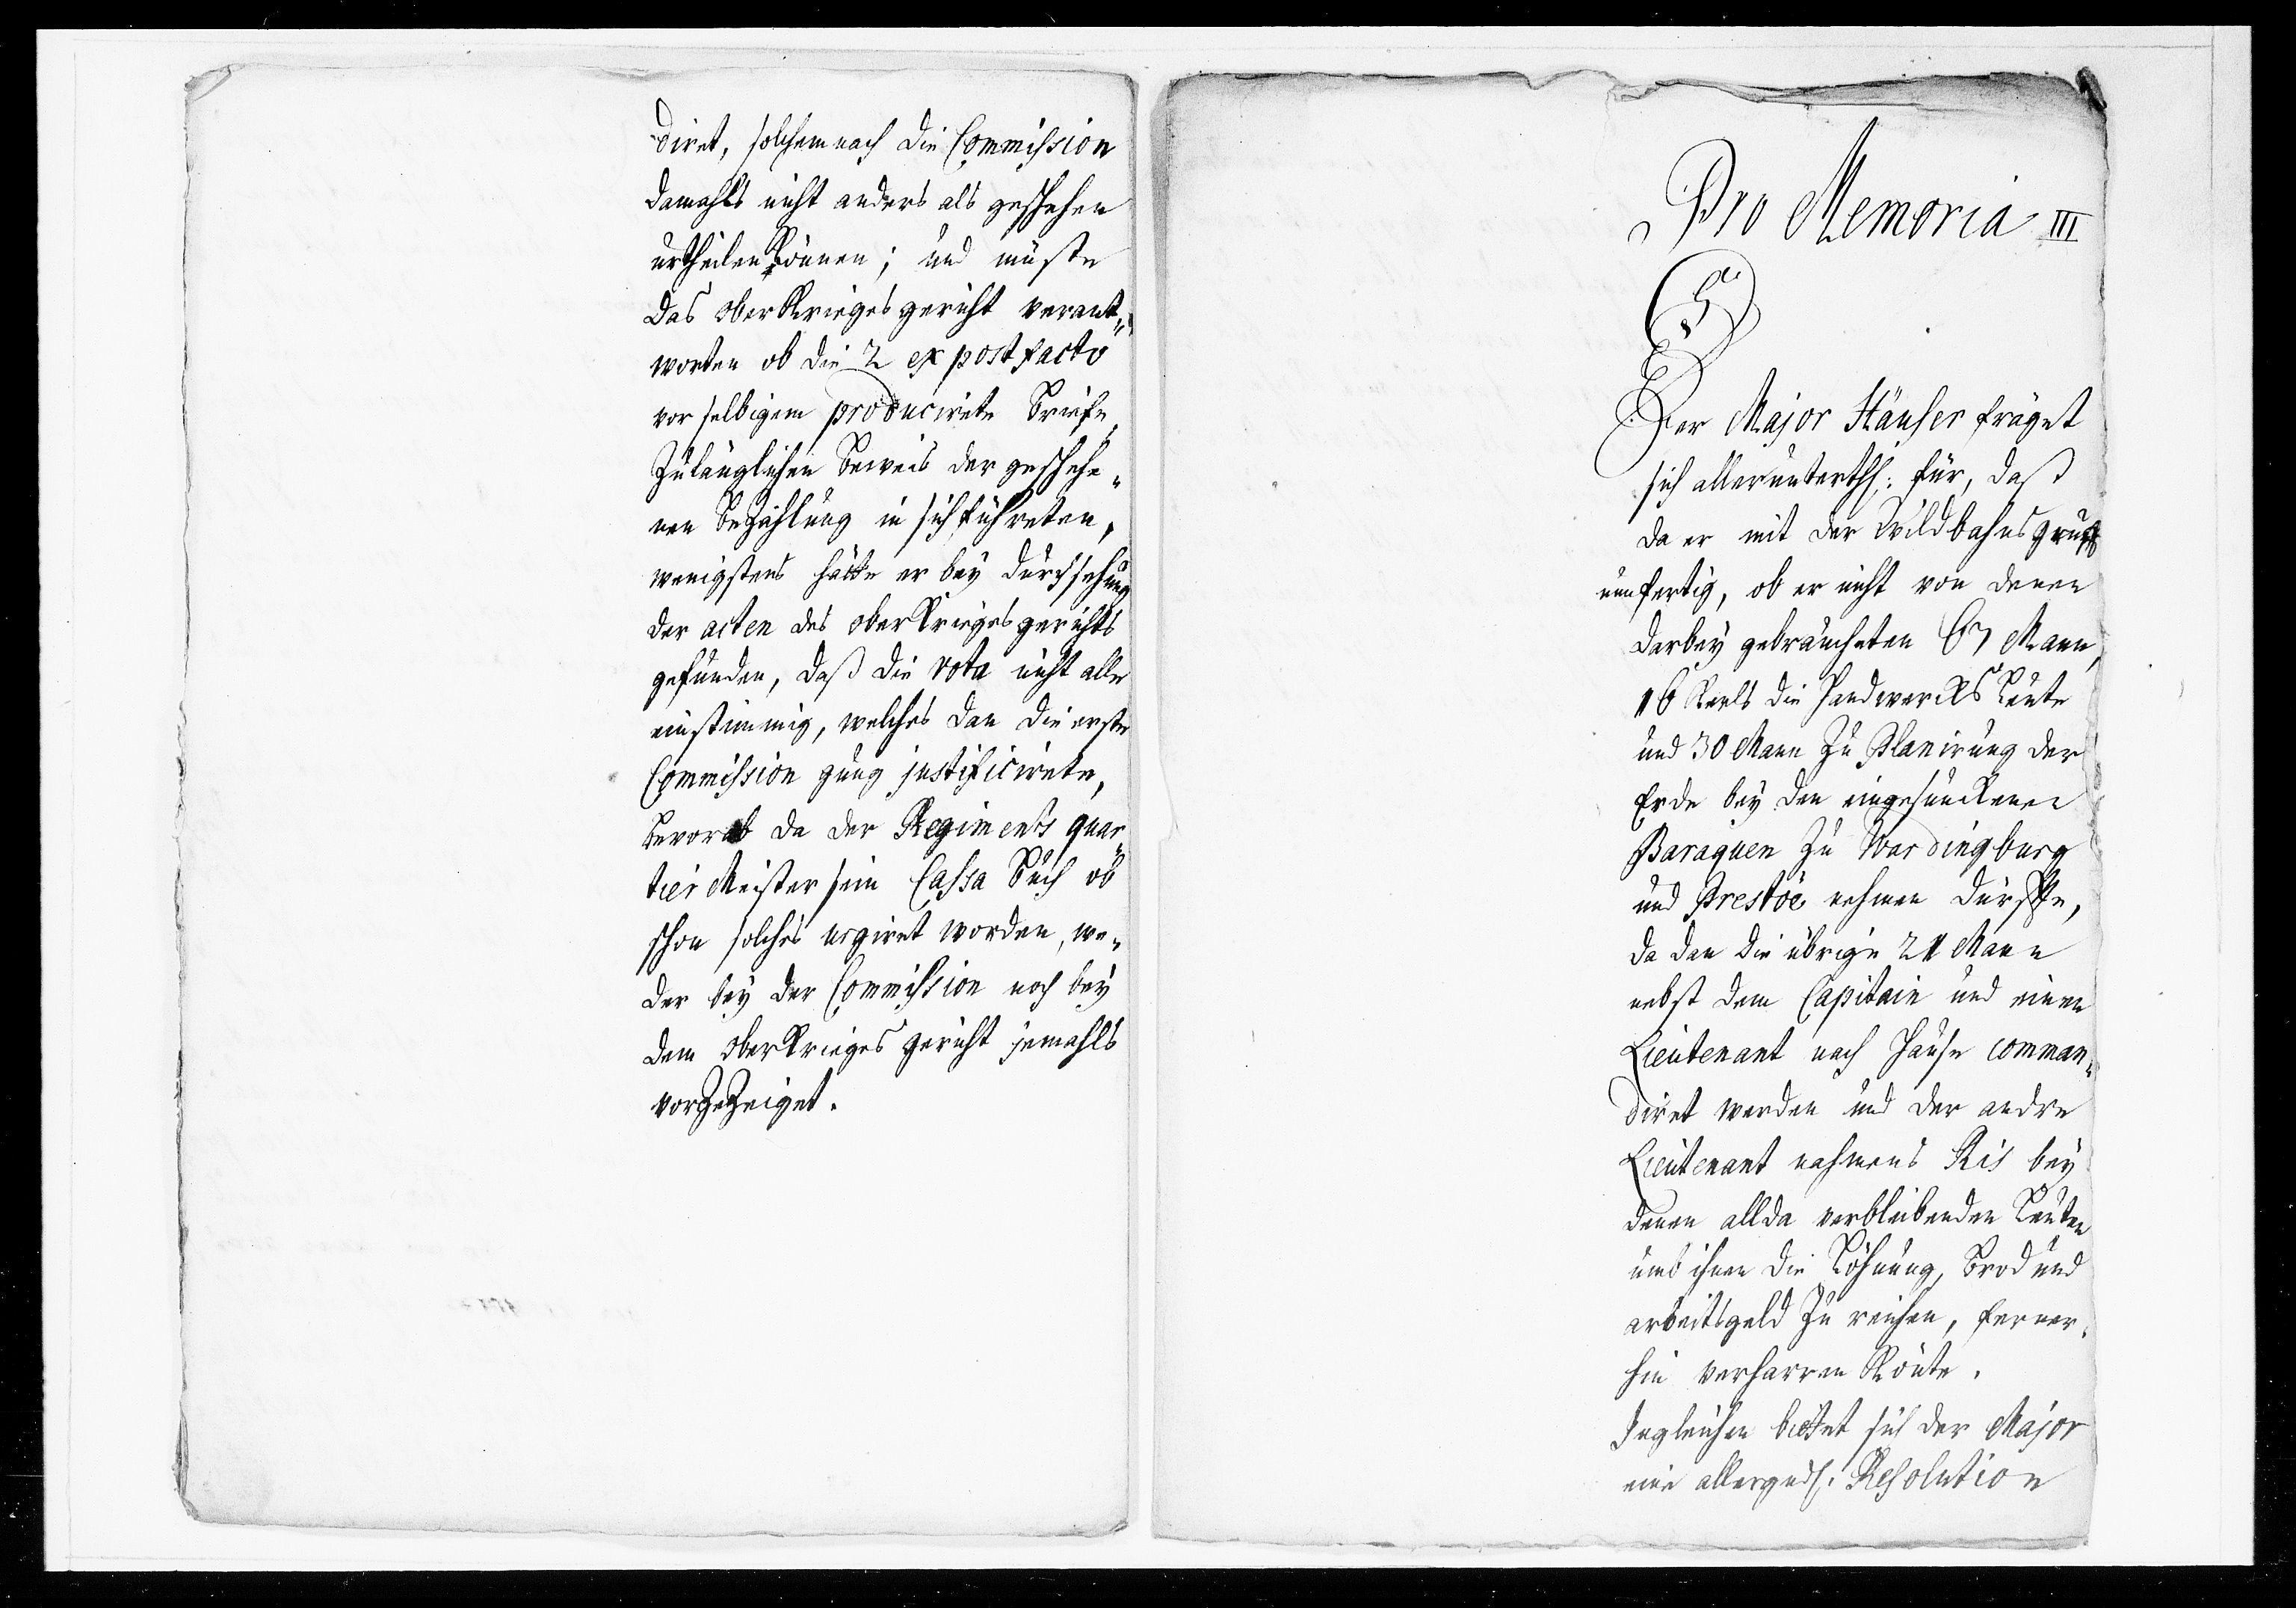 diret, solchem nach die Commission
damahls nicht anders als geschehen
urtheilen können; und müste
das Ober Krieges gericht verant„
worten ob die 2 ex post facto
vor selbigem producirete Briefe,
Zulänglichen beweis der geschehe„
nen bezahlung in sich führeten,
wenigstens hätte er bey durchsehung
der acten des Ober Krieges gerichts
gefunden, daß die vota nicht alle
einstimmig, welches dan die erste
Commission gnug justificirete,
bevorab da der Regiments quar„
tier Meister sein Cassa Buch ob
schon solches urgiret worden, we„
der bey der Commission noch bey
dem Ober Krieges gericht jemahls
vorgezeiget.

Pro Memoria III
Der Major Häuser fräget
sich allerunterth: für, daß
da er mit der Wildbahns
nunfertig, ob er nicht von denen
darbey gebraucheten 67 Mann,
16 Kerls die Handwercks Leute
und 30 Mann zu Planirung der
Erde bey den eingesunckenen
Baraquen zu Wordingburg
und Prestöe nehmen dürffte,
da dan die übrige 21 Mann
nebst dem Capitain und einen
Lieutenant nach Hause comman„
diret werden und der andre
Lieutenant nahmens Ris bey
denen allda verbleibenden Leuten
umb ihnen die Löhnung, Brod und
arbeitsgeld zu reichen, ferner„
hin verharren könte.
Ingleichen bittet sich der Major
eine allergndst. Resolution